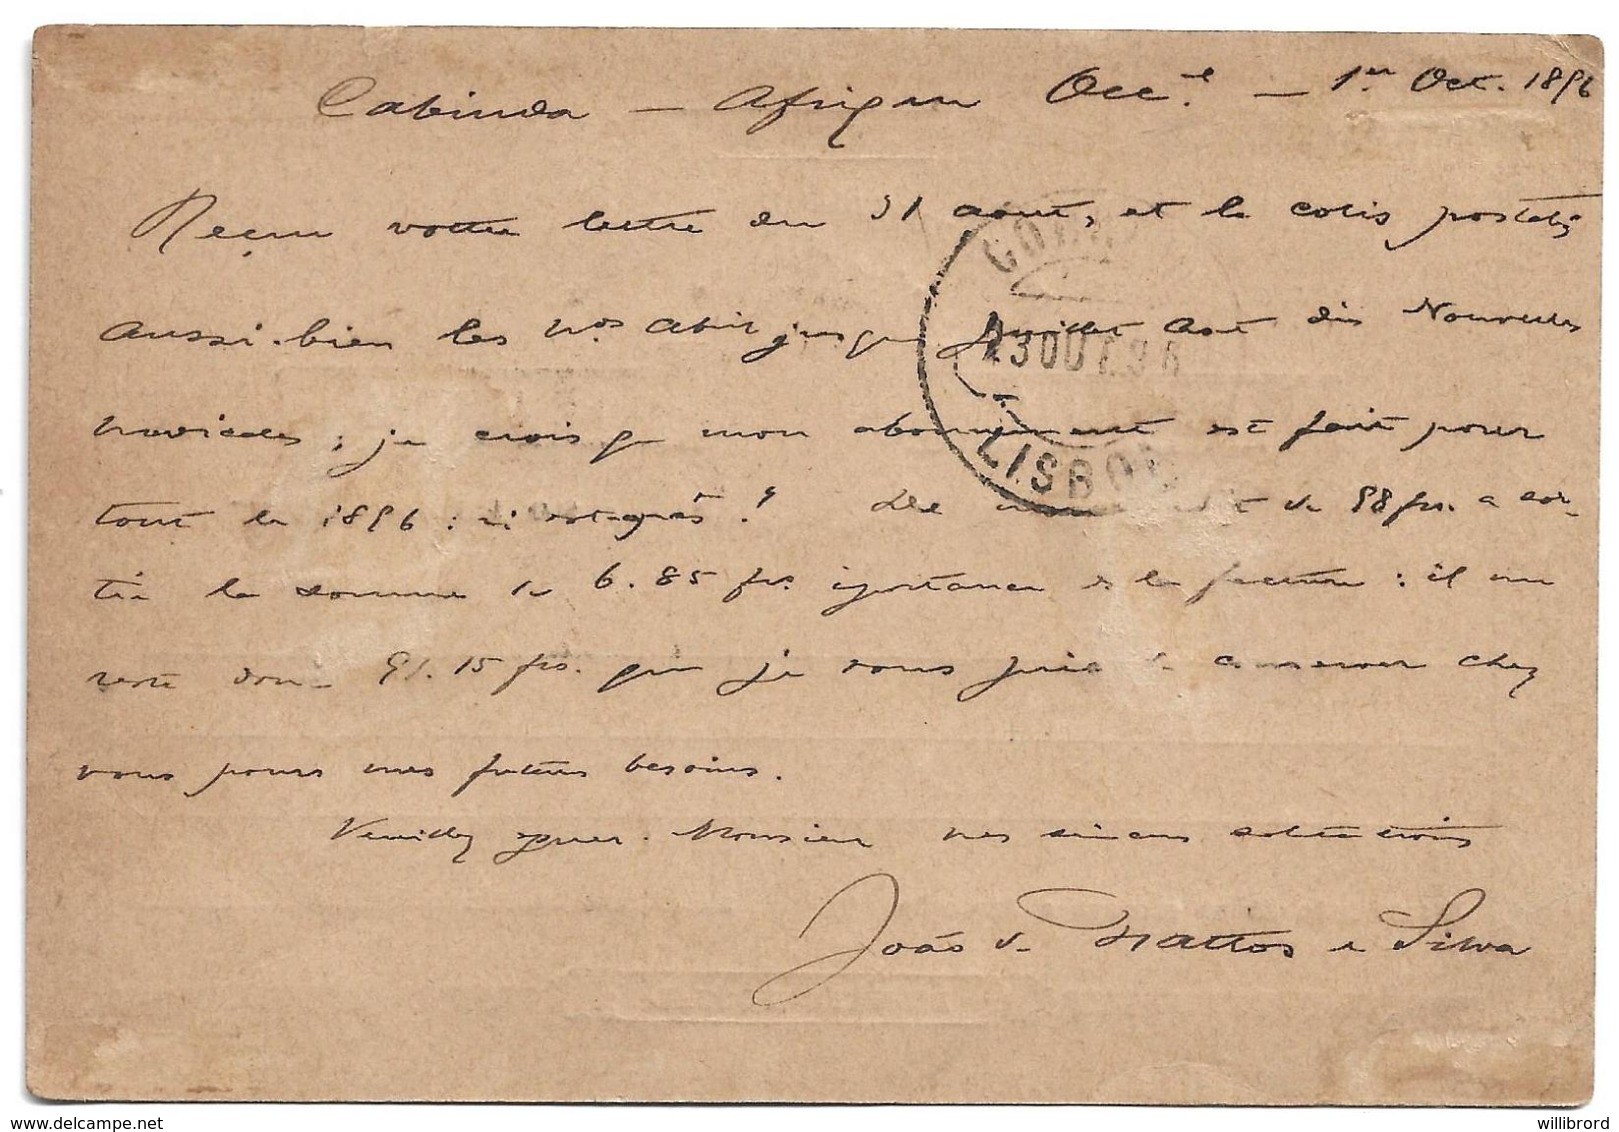 Cabinda — Afrique Occ.le — 1er Oct. 1896
Reçu votre lettre du 31 août, et le colis postal,
aussi-bien les nos abril jusque Juillet Août des Nouvelles
; je crois q mon abonnement est fait pour
tout le 1896 : n'est-ce pas? De 98 frs. a sor-
tie la somme de 6.85 frs. importance de la facture : il me
reste donc 91.15 frs. que je vous prie de conserver chez
vous pour mes futurs besoins.
Veuillez agréer, Monsieur mes sincères salutations
João de Mattos e Silva
CORR
23 OUT 96
LISBOA
willibrord